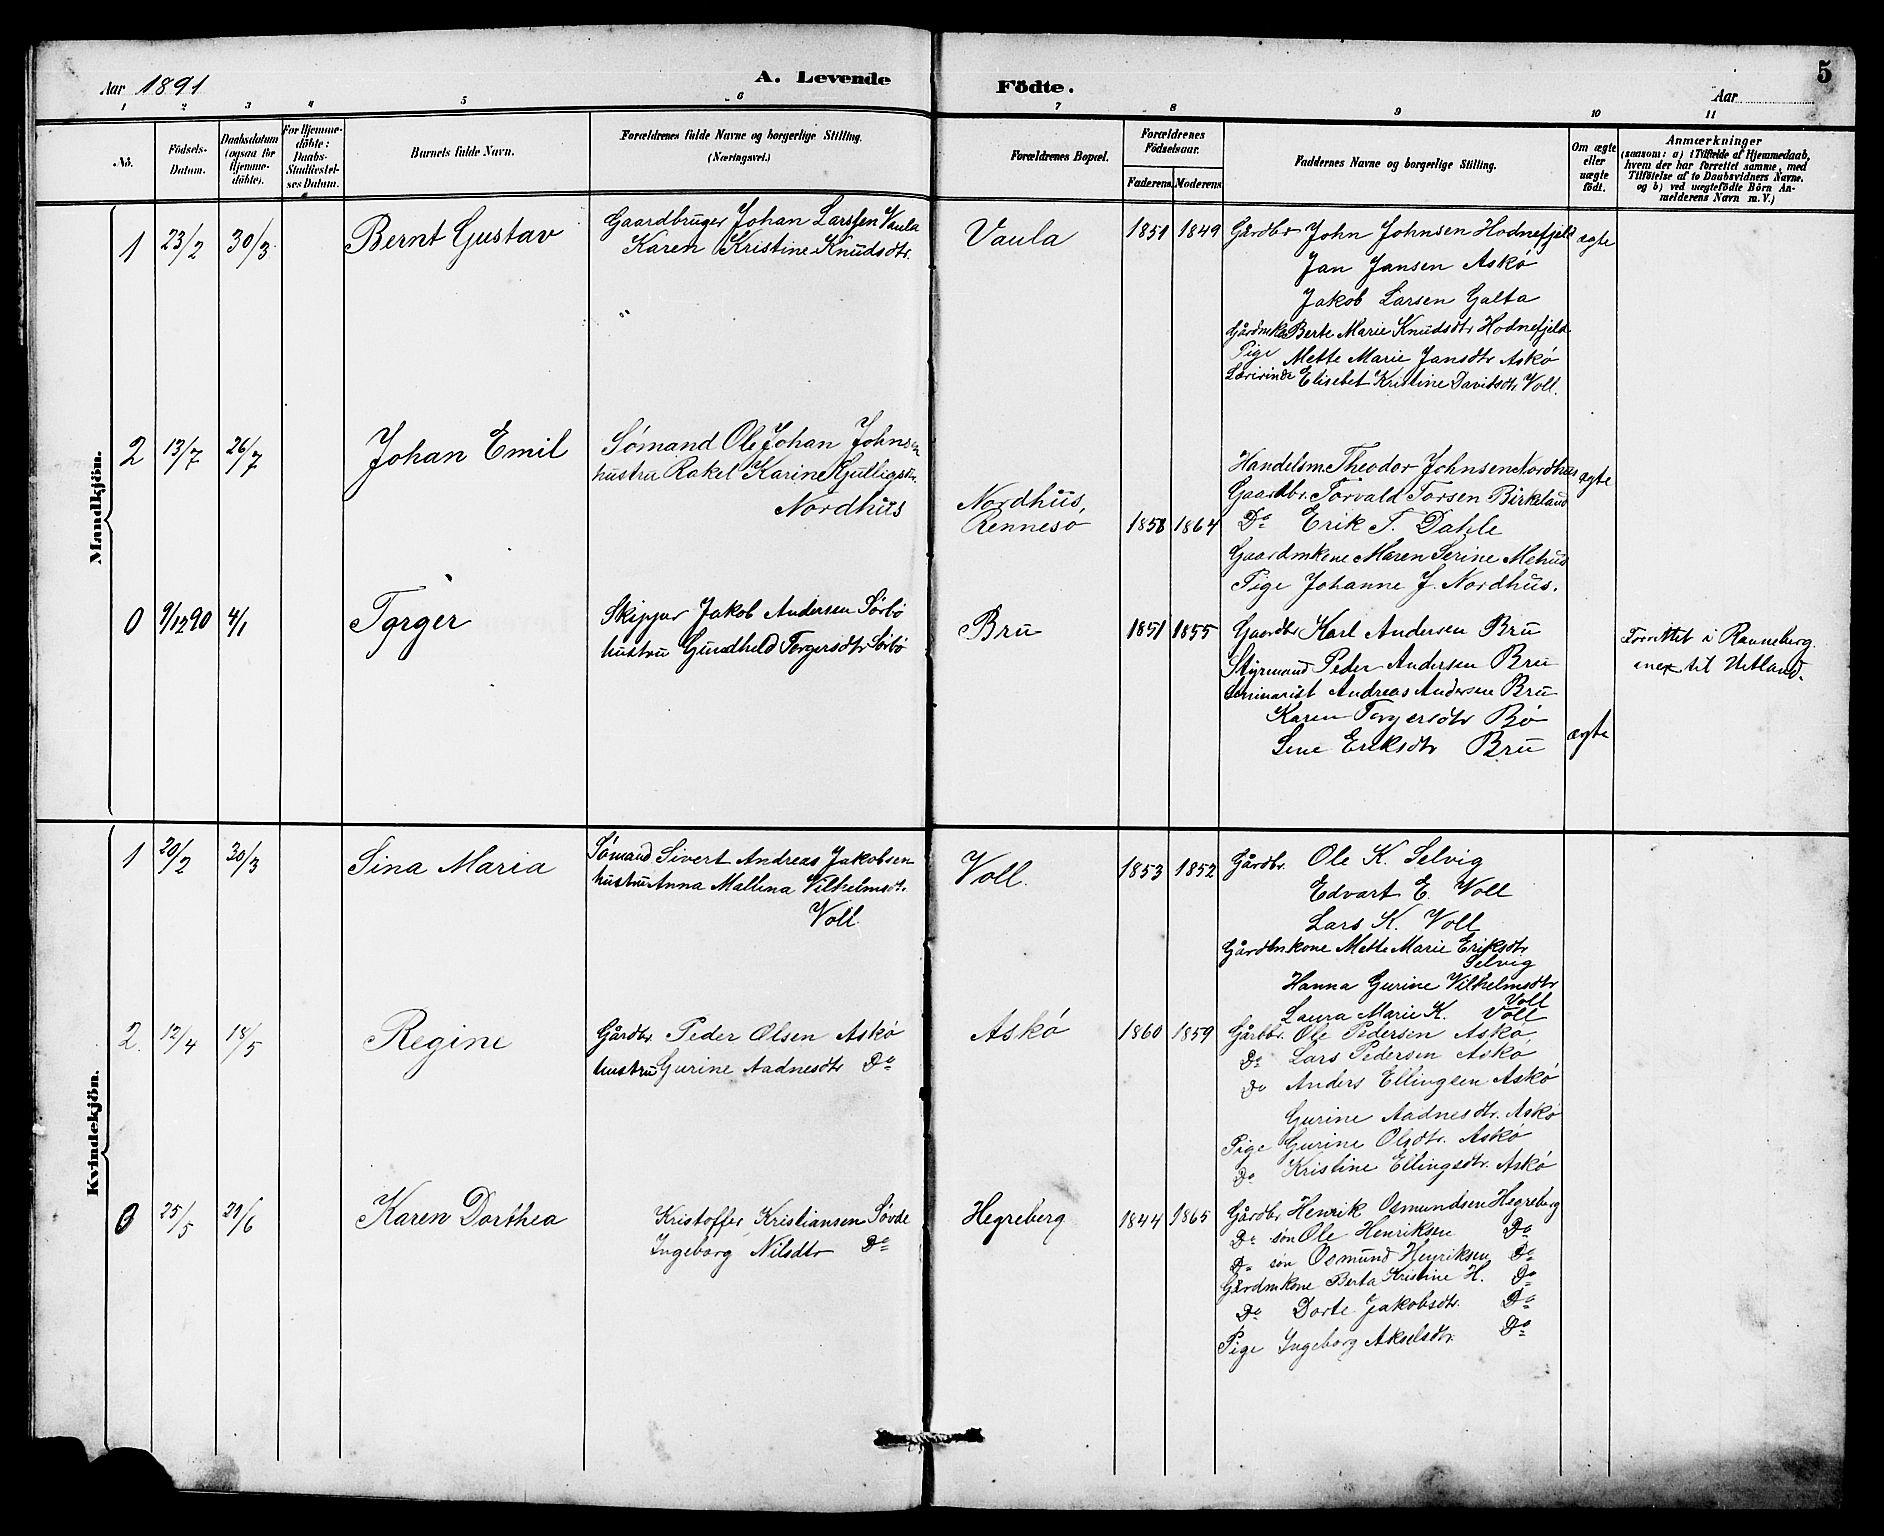 Aar 1891
A. Levende
Födte.
Aar
5
1 2 3 4 5 6 7 8 9 10 11
No.
Födsels-Datum.
Daabsdatum (ogsaa for Hjemmedöbte).
For Hjemmedöbte: Daabs-Stadfestelses Datum.
Barnets fulde Navn.
Forældrenes fulde Navne og borgerlige Stilling. (Næringsvei.)
Forældrenes Bopæl.
Forældrenes Födselsaar.
Faderens Moderens
Faddernes Navne og borgerlige Stilling.
Om ægte eller uægte födt.
Anmærkninger
(saasom: a) i Tilfælde af Hjemmedaab, hvem der har forrettet samme, med Tilföielse af to Daabsvidners Navne, og b) ved uægtefödte Börn Anmelderens Navn m. V.)
Mandkjön.
1 23/2 30/3 Bernt Gustav
Gaardbruger Johan Larssen Vaula
Karen Kristine Knudsdtr.
Vaula 1851 1849
Gårdbr John Johnsen Hodnefjell
Jan Jansen Askö
Jakob Larsen Galta
Gårdmkn Berte Marie Knudsdtr Hodnefjeld
Pige Mette Marie Jansdtr Askö
Læririnde Elisebet Kristine Davidsdtr Voll.
ægte
2 13/7 26/7 Johan Emil
Sömand Ole Johan Johnsen
hustru Rakel Karine Kjulligstr.
Nordhus
Nordhus,
Rennesö 1858 1864
Handelsm. Theodor Johnsen Nordhus
Gaardbr. Torvald Torsen Birkeland
Do Erik T. Dahle
Gaardmkone Maren Serine Mehus
Pige Johanne J. Nordhus.
ægte
0 9/12 90 4/1 Torger
Skipper Jakob Andersen Sörbö
hustru Gundheld Torgersdtr Sörbö
Bru 1851 1855
Gaardbr Karl Andersen Bru
Styrmand Peder Andersen Bru
Seminarist Andreas Andersen Bru
Karen Torgersdtr Bö
Lene Eriksdtr Bru
ægte
Forrettet i Ranneberg
anex til Hetland.
Kvindekjön.
1 20/2 30/3 Sina Maria
Sömand Sivert Andreas Jakobsen
hustru Anna Mallena Vilhelmsdt.
Voll
Voll. 1853 1852
Gårdbr. Ole K. Selvig
Edvart E. Voll
Lars K. Voll
Gårdmkone Mette Marie Eriksdtr
Selvig
Hanna Gurine Vilhelmsdtr
Voll
Laura Marie K. Voll
2. 12/4 18/5 Regine
Gårdbr. Peder Olsen Askö
hustru Gurine Aadnesdtr Do
Askö 1860 1859
Gårdbr. Ole Pedersen Askö,
Do Lars Pedersen Askö
Do Anders Ellingsen Askö
Gurine Aadnesdtr. Askö
Pige Gurine Olsdtr. Askö
Do Kristine Ellingsdtr. Askö
0 25/5 29/6 Karen Dorthea
Kristoffer Kristiansen Sövde
Ingeborg Nilsdtr Do
Hegreberg 1844 1865
Gårdbr Henrik Osmundsen Hegreberg
Do sön Ole Henriksen Do
Do sön Osmund Henriksen Do
Gårdmkone Berta Kristine H. Do
Do Dorte Jakobsdtr. Do
Pige Ingeborg Akselsdtr. Do